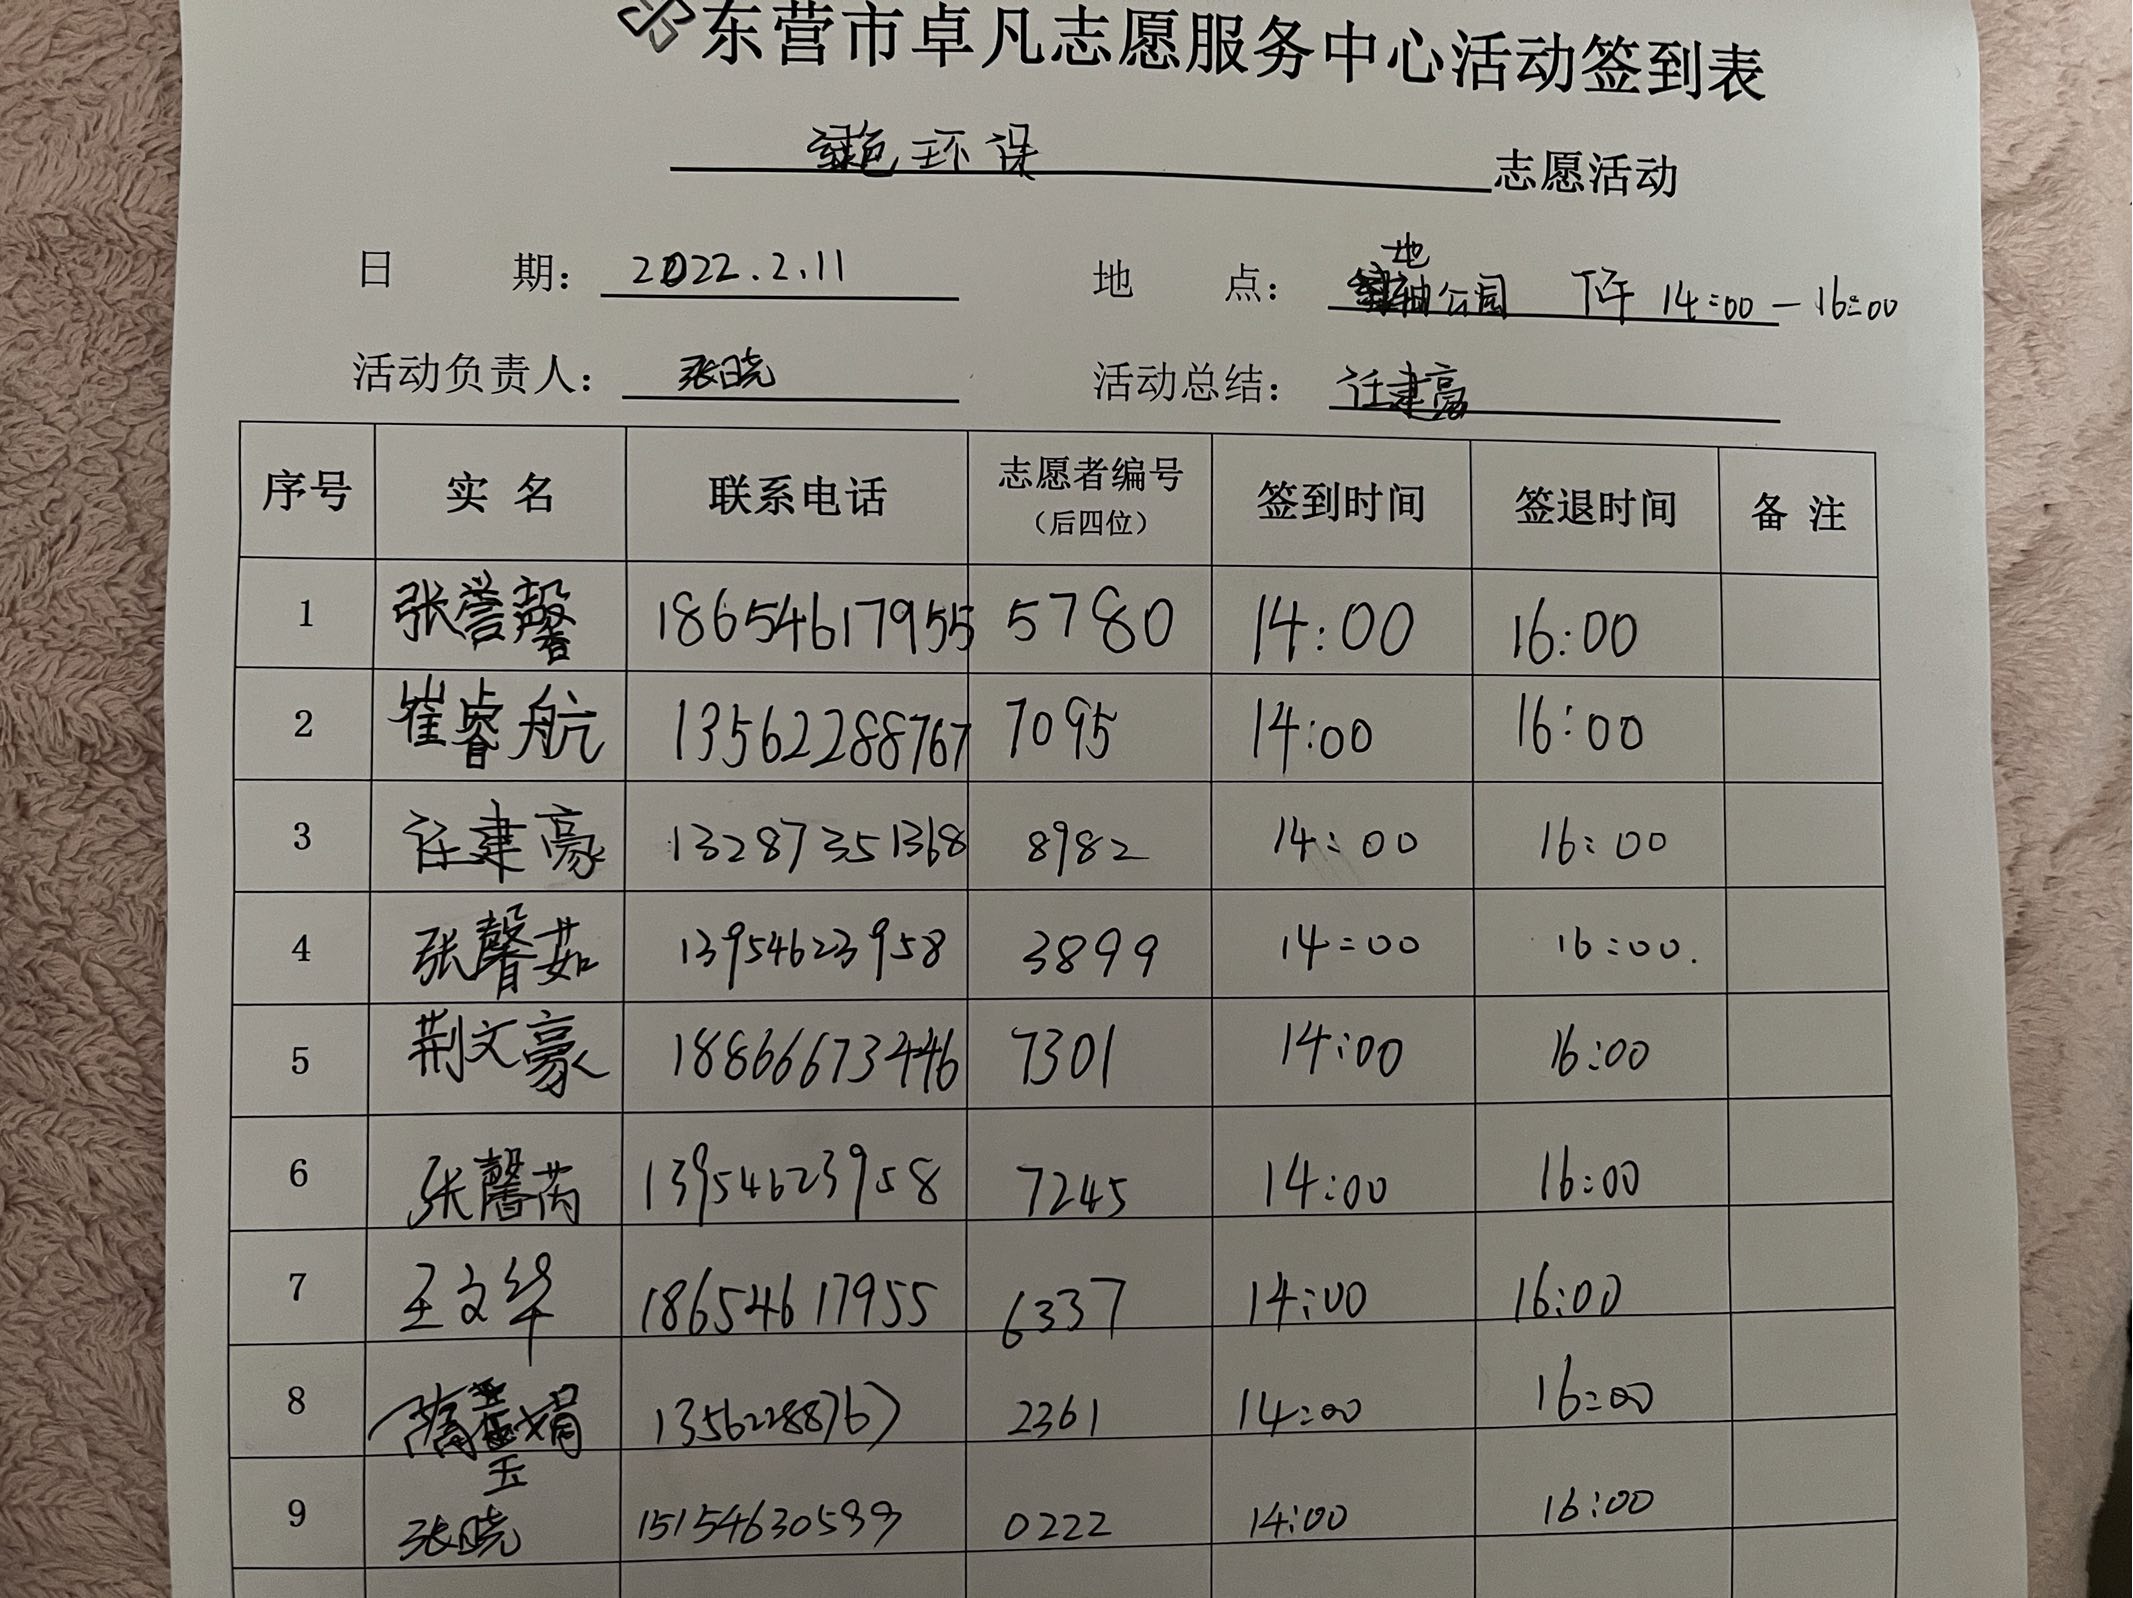 东营市卓凡志愿服务中心活动签到表
绿色环保 志愿活动
日 期: 2022.2.11 地 点: 地轴公园 下午 14:00-16:00
活动负责人: 张晓 活动总结: 任建豪
序号 实 名 联系电话 志愿者编号 (后四位) 签到时间 签退时间 备 注
1 张誉馨 18654617955 5780 14:00 16:00
2 崔睿航 13562288767 7095 14:00 16:00
3 任建豪 13287351368 8982 14:00 16:00
4 张馨茹 13954623958 3899 14:00 16:00.
5 荆文豪 18866673446 7301 14:00 16:00
6 张馨芮 13954623958 7245 14:00 16:00
7 王文华 18654617955 6337 14:00 16:00
8 隋玉娟 13562288767 2361 14:00 16:00
9 张晓 15154630599 0222 14:00 16:00